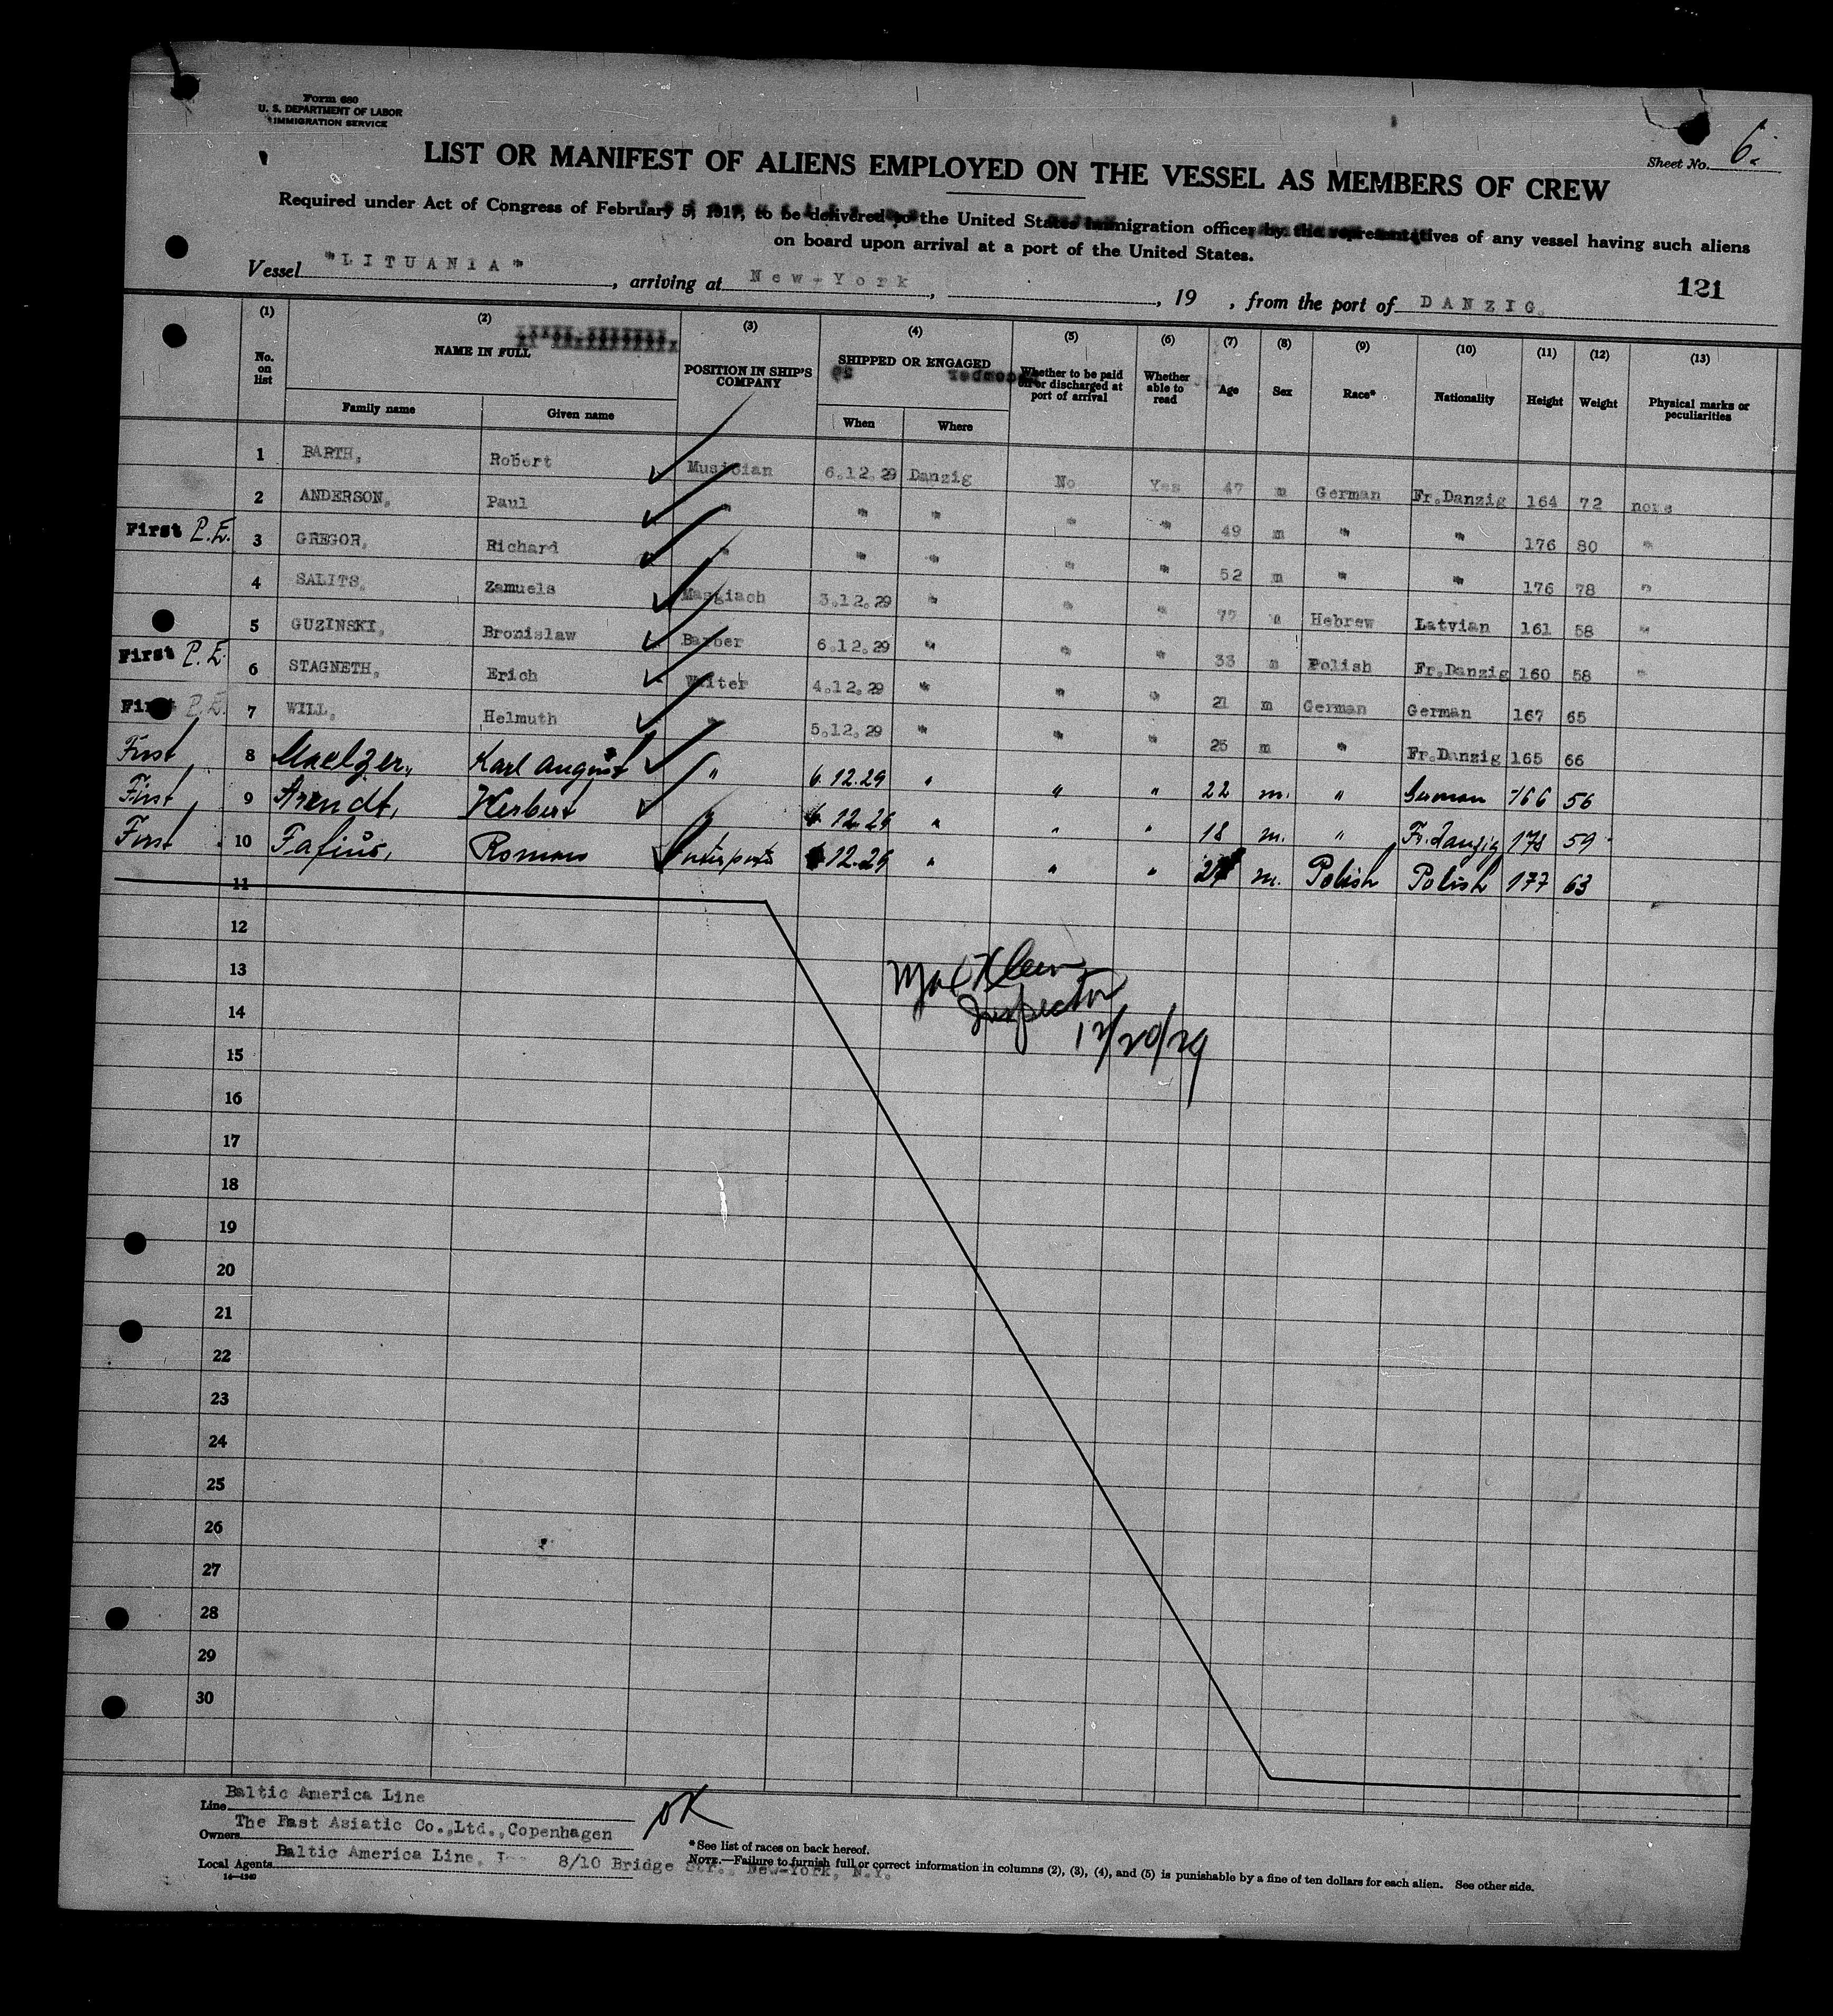 Form 680
U. S. DEPARTMENT OF LABOR
IMMIGRATION SERVICE
Sheet No. 6.
LIST OR MANIFEST OF ALIENS EMPLOYED ON THE VESSEL AS MEMBERS OF CREW
Required under Act of Congress of February 5, 1917, to be delivered to the United States immigration officer by the representatives of any vessel having such aliens
on board upon arrival at a port of the United States.
121
Vessel "LITUANIA", arriving at New-York, , 19 , from the port of DANZIG.
(1) (2) (3) (4) (5) (6) (7) (8) (9) (10) (11) (12) (13)
No. on list NAME IN FULL POSITION IN SHIP'S COMPANY SHIPPED OR ENGAGED Whether to be paid off or discharged at port of arrival Whether able to read Age Sex Race* Nationality Height Weight Physical marks or peculiarities
Family name Given name When Where
1 BARTH, Robert Musician 6.12.29 Danzig No Yes 47 m German Fr.Danzig 164 72 none
2 ANDERSON, Paul " " " " " 49 m " " 176 80 "
First P.E. 3 GREGOR, Richard " " " " " 52 m " " 176 78 "
4 SALITS, Zamuels Masgiach 3.12.29 " " " m Hebrew Latvian 161 58 "
5 GUZINSKI, Bronislaw Barber 6.12.29 " " " 33 m Polish Fr.Danzig 160 58 "
First P.E. 6 STAGNETH, Erich Waiter 4.12.29 " " " 21 m German German 167 65
First P.E. 7 WILL, Helmuth " 5.12.29 " " " 25 m " Fr.Danzig 165 66
First 8 Maelzer, Karl August " 6.12.29 " " " 22 m. " German 166 56
First 9 Arendt, Herbert " 6.12.29 " " " 18 m. " Fr. Danzig 178 59
First 10 Roman 12.29 " " " m. Polish Polish 177 63
11
12
13
14
15
16
17
18
19
20
21
22
23
24
25
26
27
28
29
30
Klein
Inspector
12/20/29
Line Baltic America Line
OK
Owners The East Asiatic Co.,Ltd.,Copenhagen
Local Agents Baltic America Line, 8/10 Bridge Str., New-York, N.Y.
*See list of races on back hereof.
NOTE.—Failure to furnish full or correct information in columns (2), (3), (4), and (5) is punishable by a fine of ten dollars for each alien. See other side.